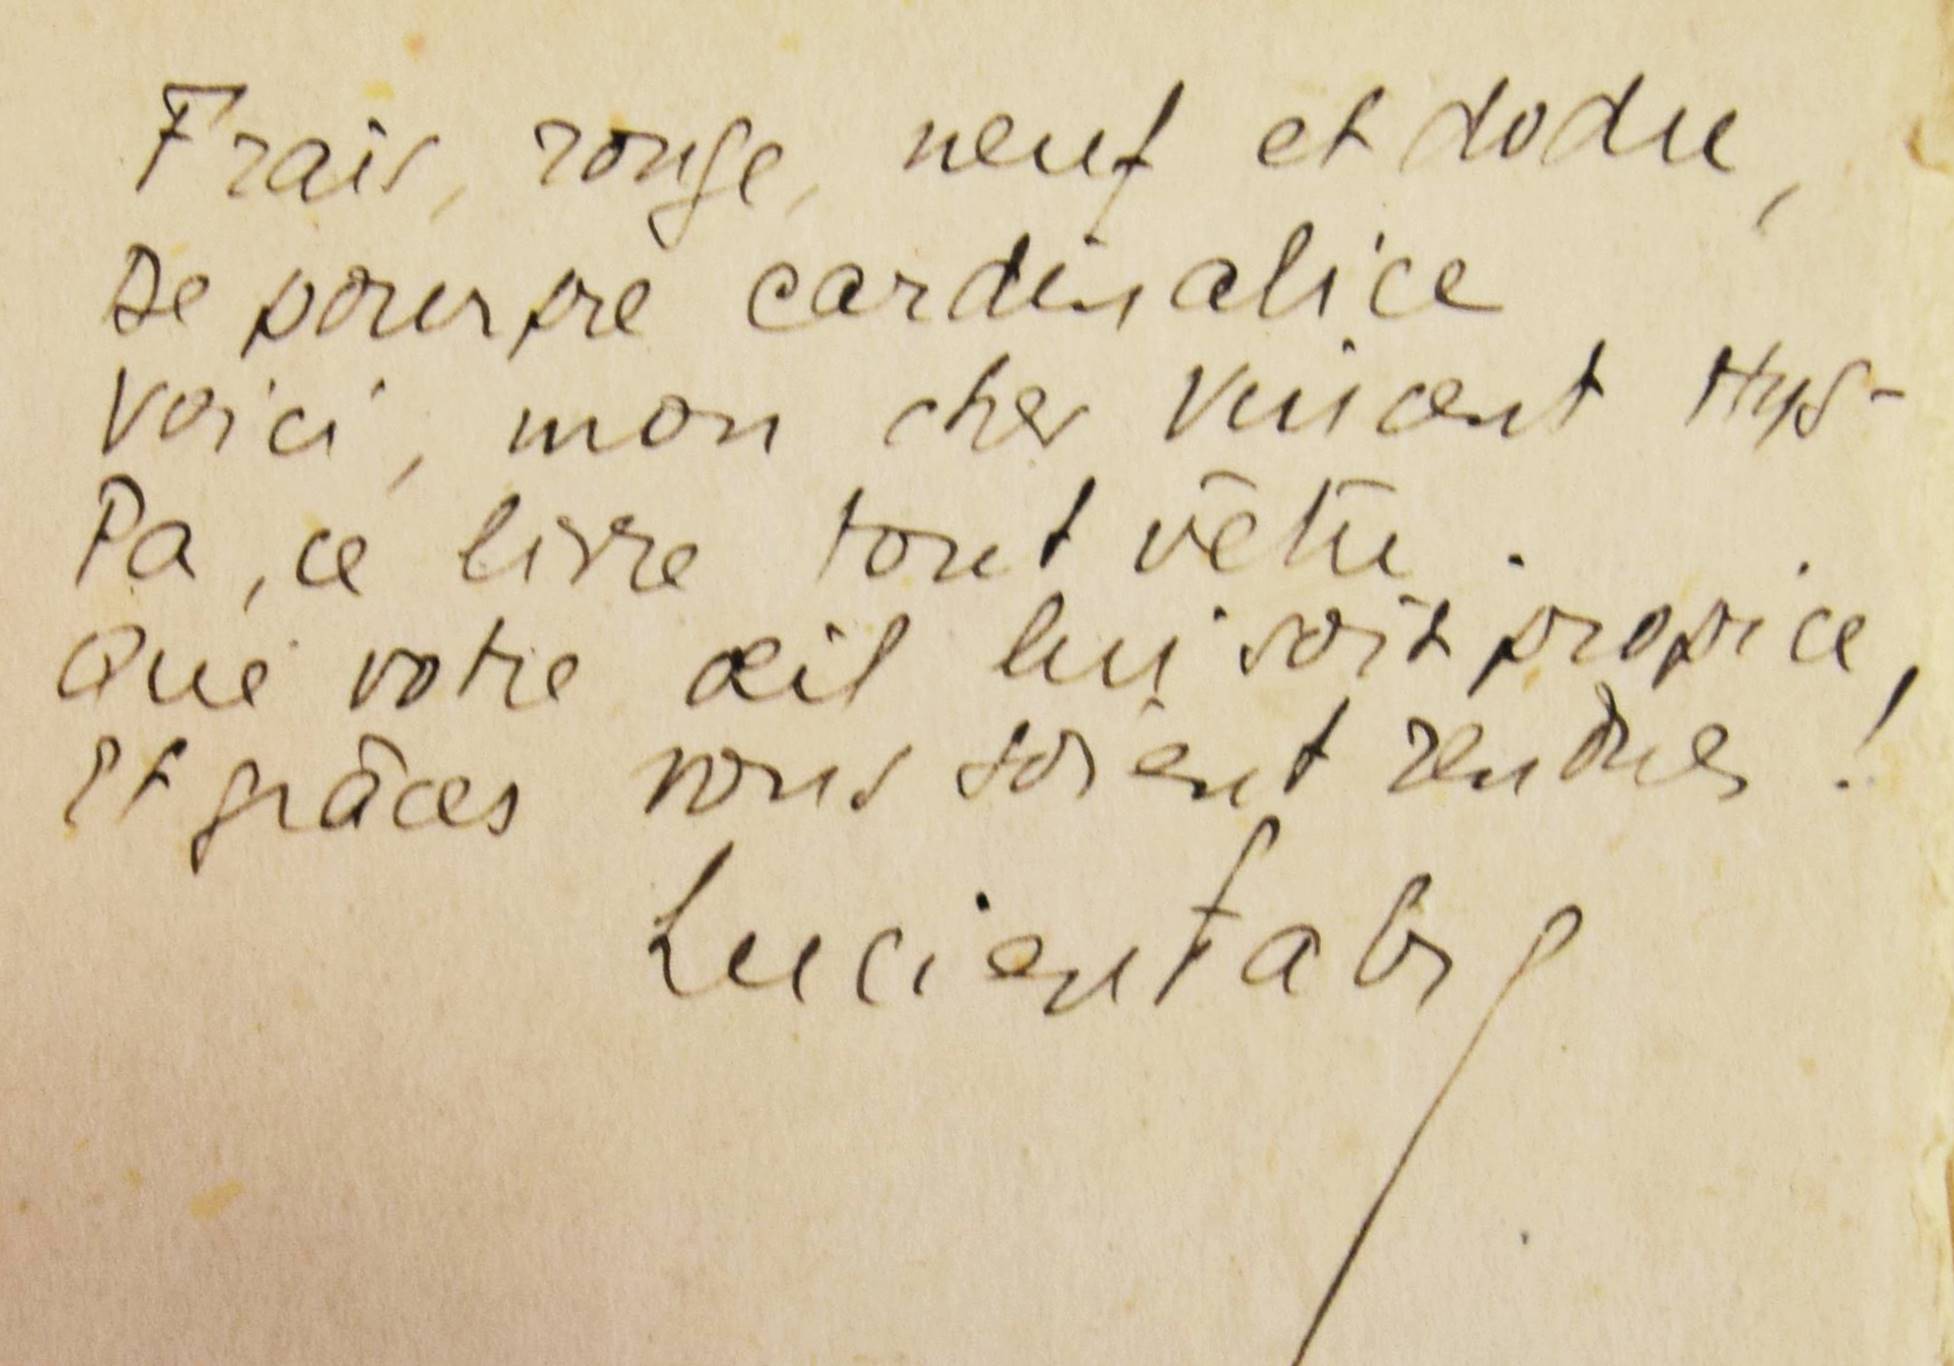 Frais, rouge, neuf et dodu,
De pourpre cardinalice
Voici, mon cher Vincent Hys-
Pa, ce livre tout vêtu.
Que votre œil lui soit propice,
Et grâces vous soient rendues !
Lucien Fabre